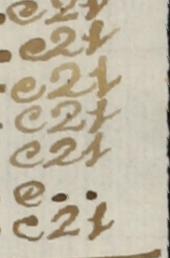 e2t
e2t
e2t
e2t
e2t
e..
e2t